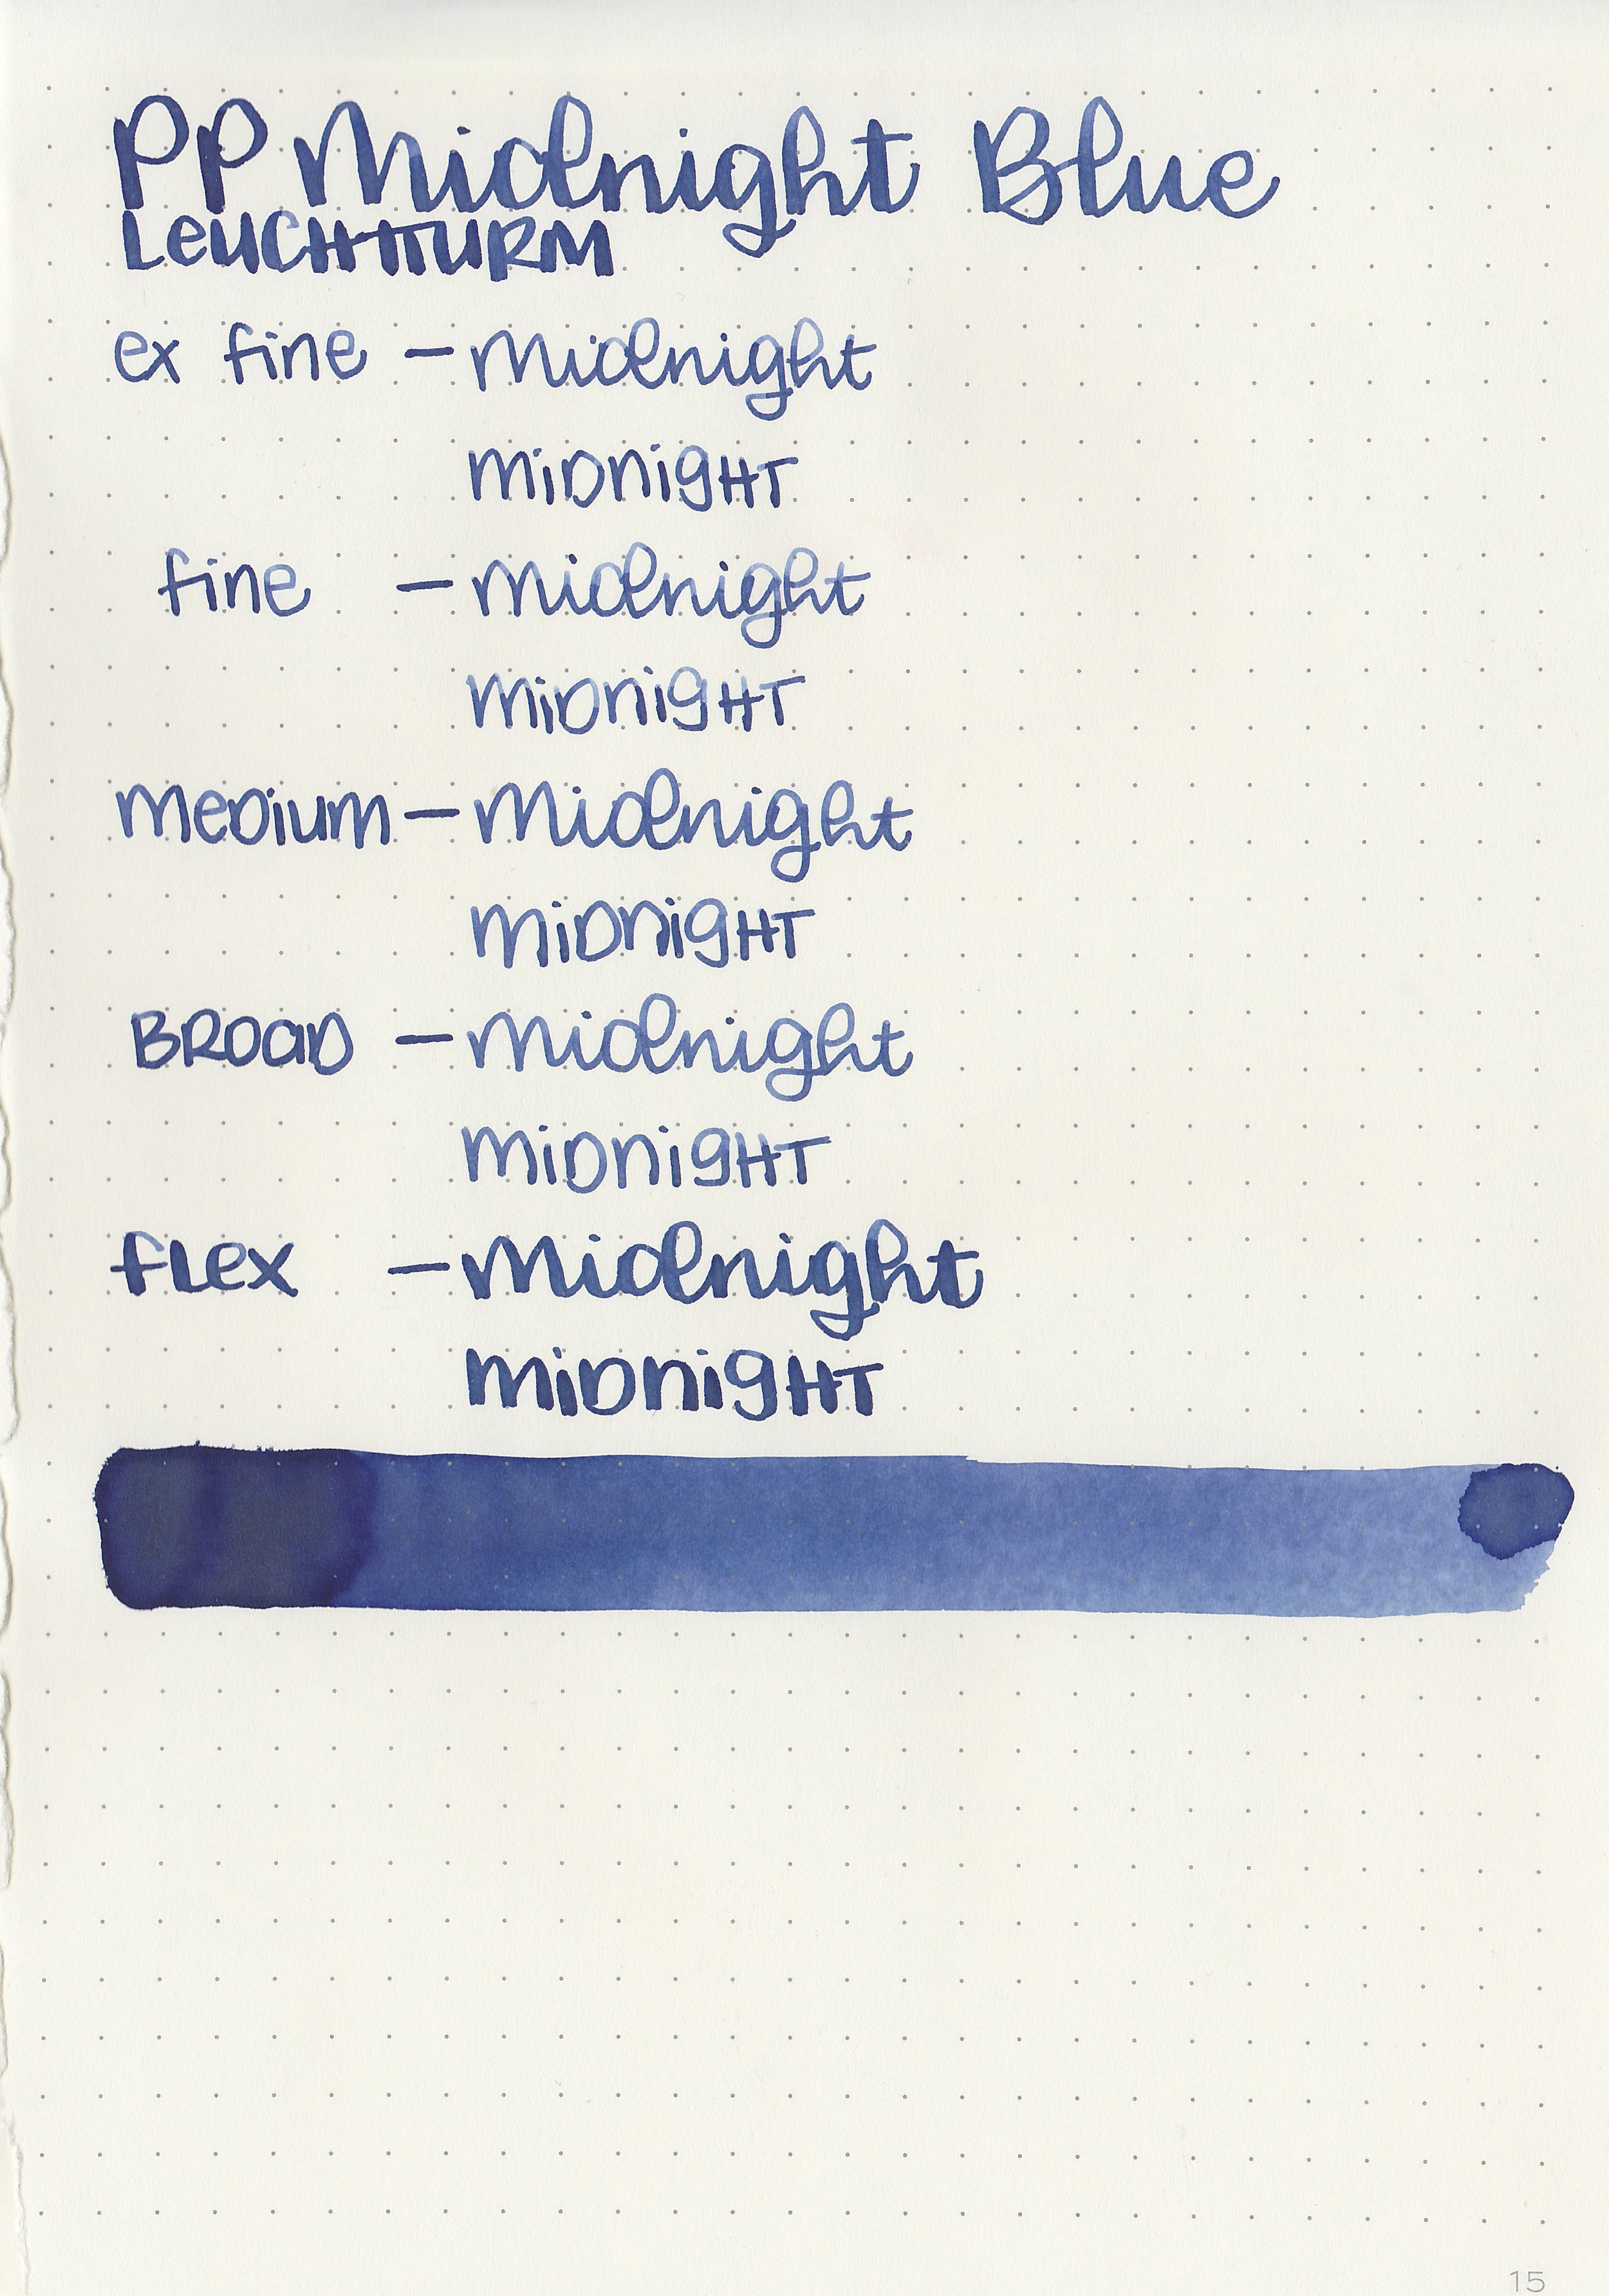 PP Midnight Blue
LEUCHTTURM
ex fine – Midnight
MIDNIGHT
fine – Midnight
MIDNIGHT
MEDIUM – Midnight
MIDNIGHT
BROAD – Midnight
MIDNIGHT
FLEX – Midnight
MIDNIGHT
15